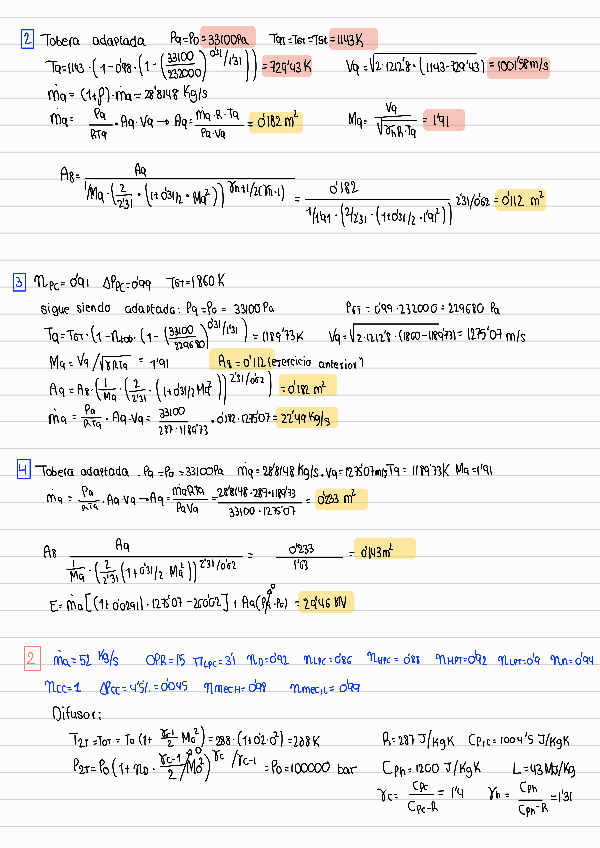 2 Tobera adaptada Pa=P0=33100Pa T9t=T8t=T5t=1143K
T9=1143·(1-0'98·(1-(33100/232000)^0'31/1'31))=729'43K V9=√2·1212'8·(1143-729'43)=1001'58m/s
ṁa=(1+f)·ṁa=28'8148 Kg/s
ṁa=Pa/RTa·Aq·Va→Aq=ṁa·R·Ta/Pa·Va=0'182 m² Ma=Va/√γhR·Ta=1'91
A8=Aq/1/Ma·(2/2'31·(1+0'31/2·Ma²))^γh+1/2(γh-1)=0'182/1/1'91·(2/2'31·(1+0'31/2·1'91²))^2'31/0'62=0'112 m²
3 ηPC=0'91 ΔPPC=0'99 T8T=1860K
sigue siendo adaptada: P9=P0=33100Pa P8T=0'99·232000=229680 Pa
T9=T8T·(1-ηtob·(1-(33100/229680)^0'31/1'31))=1189'73K V9=√2·1212'8·(1860-1189'73)=1275'07m/s
M9=V9/√γRT9=1'91 A8=0'112 (ejercicio anterior)
A9=A8·(1/M9·(2/2'31·(1+0'31/2M9²))^2'31/0'62)=0'182 m²
ṁa=Pa/RTa·Aq·Va=33100/287·1189'73·0'182·1275'07=22'49Kg/s
4 Tobera adaptada. P9=P0=33100Pa ṁa=28'8148 Kg/s. V9=1275'07m/s T9=1189'73K M9=1'91
ṁa=Pa/RTa·Aq·Va→Aq=ṁaRTa/PaVa=28'8148·287·1189'73/33100·1275'07=0'233 m²
A8 Aq/1/Ma·(2/2'31(1+0'31/2·Ma²))^2'31/0'62=0'233/1'63=0'143m²
E=ṁa[(1+0'0291)·1275'07-200'62]+Aq(P9-P0)=29'46 kN
2 ṁa=52 Kg/s OPR=15 πLPC=3'1 ηD=0'92 ηLPC=0'86 ηHPC=0'88 ηHPT=0'92 ηLPT=0'9 ηn=0'94
ηCC=1 ΔPCC=4'5%=0'045 ηmecH=0'98 ηmecL=0'99
Difusor:
T2T=T0T=T0(1+γc-1/2 M0²)=288·(1+0'2·0²)=288K R=287 J/KgK CPC=1004'5 J/KgK
P2T=P0(1+ηD·γc-1/2 M0²)^γc/γc-1=P0=100000 bar CPh=1200 J/KgK L=43 MJ/Kg
γc=CPC/CPC-R=1'4 γh=CPh/CPh-R=1'31